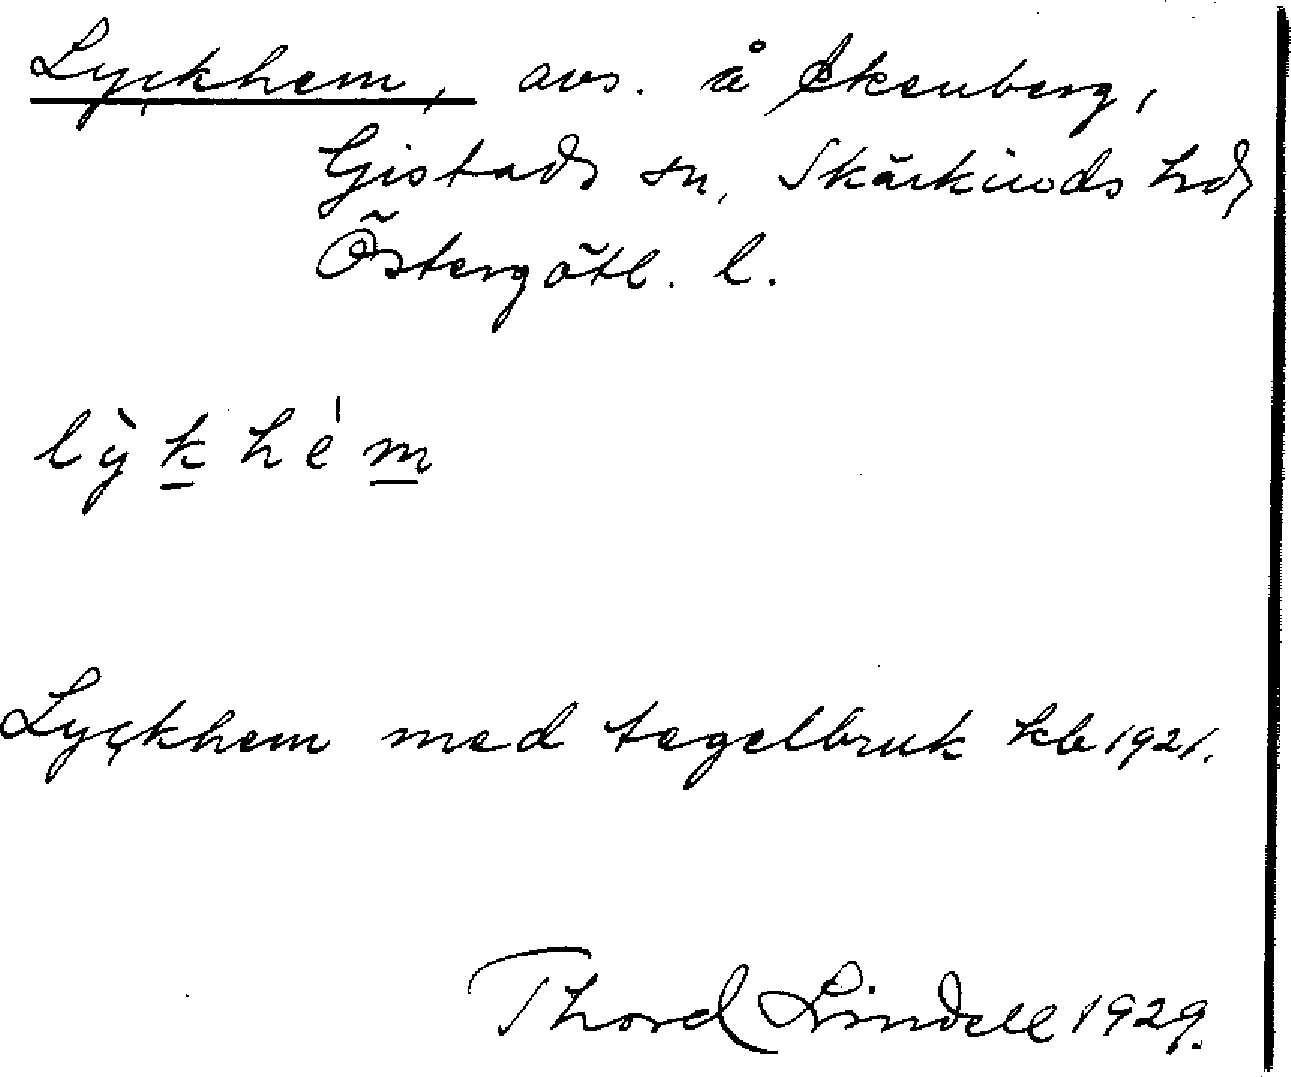 Lyckhem, avs. å Ekenberg,
Gistads sn, Skärkinds hd,
Östergötl. l.
lỳk hé m
Lyckhem med tegelbruk kb 1921.
Thord Lindell 1929.